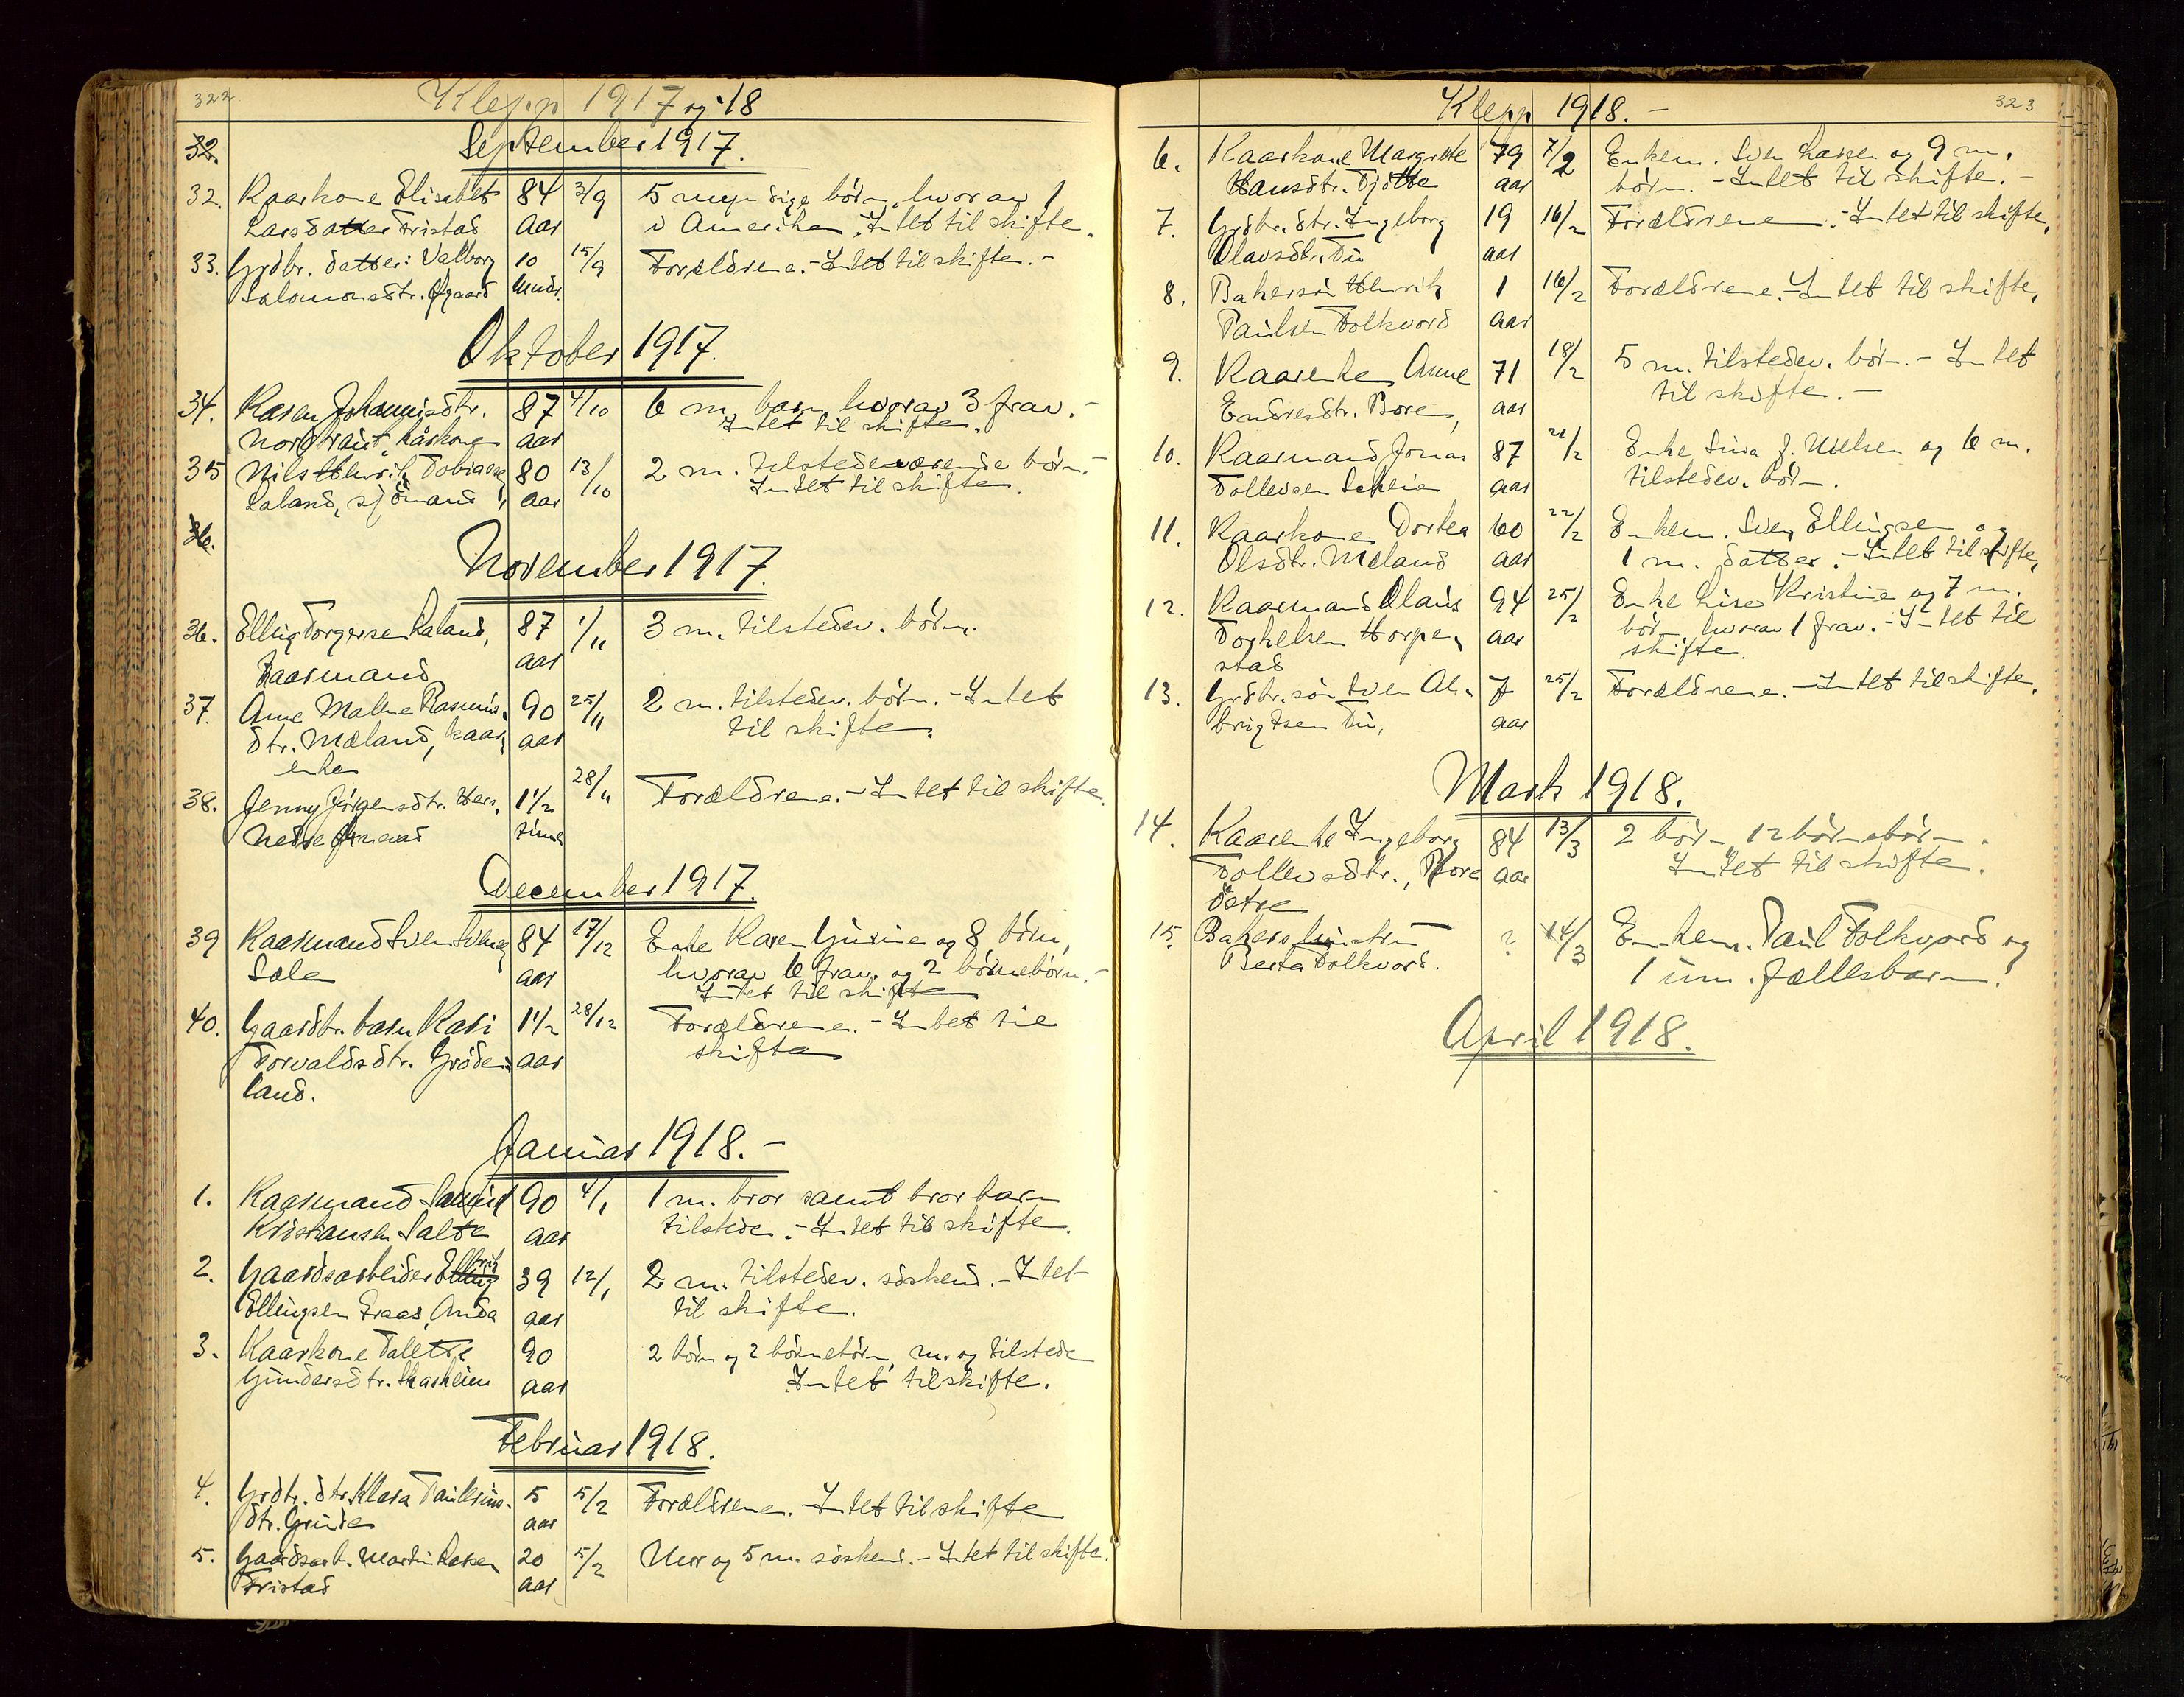 322
Klepp 1917 og 18
32.
September 1917.
32. Kaarkone Elisabet 84 3/9 5 myndige børn, hvorav 1
Larsdatter Fristad aar i Amerika. Intet til skifte.
33. Grdbr. datter: Valborg 10 15/9 Forældrene. - Intet til skifte. -
Salomonsdtr. Øgaard Mndr.
Oktober 1917.
34. Karen Johannisdtr. 87 4/10 6 m. barn hvorav 3 frav. -
kårkone aar Intet til skifte.
35 Nils Henrik Tobiasse 80 13/10 2 m. tilstedeværende børn. -
Laland, sjømand aar Intet til skifte.
36.
November 1917.
36. Elling Torgersen Laland, 87 1/11 3 m. tilstedev. børn.
Kaarmand aar
37. Anne Malene Rasmus- 90 25/11 2 m. tilstedev. børn. - Intet
dtr. Mæland, kaar- aar til skifte.
enke
38. Jenny Jørgensdtr. 1 1/2 28/11 Forældrene. - Intet til skifte.
Nedre time
December 1917.
39 Kaarmand Sven 84 17/12 Enke Karen Gurine og 8 børn,
Sæle aar hvorav 6 frav. og 2 børnebørn. -
Intet til skifte
40. Gaardbr. barn Kari 1 1/2 28/12 Forældrene. - Intet til
Torvaldsdtr. Grøde- aar skifte
land.
Januar 1918. -
1. Kaarmand 90 4/1 1 m. bror samt brorbarn
Kristiansen Salte aar tilstede. - Intet til skifte.
2. Gaardsarbeider 39 12/1 2 m. tilstedev. søskend. - Intet
Ellingsen Anda aar til skifte.
3. Kaarkone Talette 90 2 børn og 2 børnebørn, m. og tilstede
Gundersdtr. Skasheim aar Intet til skifte.
Februar 1918.
4. Grdbr. dtr. Klara Paulsins- 5 5/2 Forældrene. - Intet til skifte
dtr. Grude aar
5. Gaardsarb. Martin Larsen 20 5/2 Mor og 5 m. søskend. - Intet til skifte.
Fristad aar
323
Klepp 1918. -
6. Kaarkone Margrete 79 7/2 Enkem. Sven Larsen og 9 m.
Hansdtr. Tjøtte aar børn. - Intet til skifte. -
7. Grdbr. dtr. Ingeborg 19 16/2 Forældrene. - Intet til skifte.
Olavsdtr. Tu aar
8. Bakersøn Henrik 1 16/2 Forældrene. - Intet til skifte.
Paulsen Folkvord aar
9. Kaarenke Anne 71 18/2 5 m. tilstedev. børn. - Intet
Endresdtr. Bore, aar til skifte. -
10. Kaarmand Jonas 87 21/2 Enke Sina J. Nielsen og 6 m.
Tollevsen aar tilstedev. børn.
11. Kaarkone Dortea 60 22/2 Enkem. Sven Ellingsen og
Olsdtr. Mæland aar 1 m. datter. - Intet til skifte.
12. Kaarmand Olaus 94 25/2 Enke Lise Kristine og 7 m.
Torkelsen Horpe- aar børn, hvorav 1 frav. - Intet til
stad skifte.
13. Grdbr. søn Sven Al- 7 25/2 Forældrene. - Intet til skifte.
brigtsen Tu, aar
Marts 1918.
14. Kaarenke Ingeborg 84 13/3 2 børn, 12 børnebørn.
Tollevsdtr., Bore aar Intet til skifte.
østre
15. Bakers hustru ? 14/3 Enkem. Paul Folkvord og
Berta Folkvord. 1 um. fællesbarn.
April 1918.